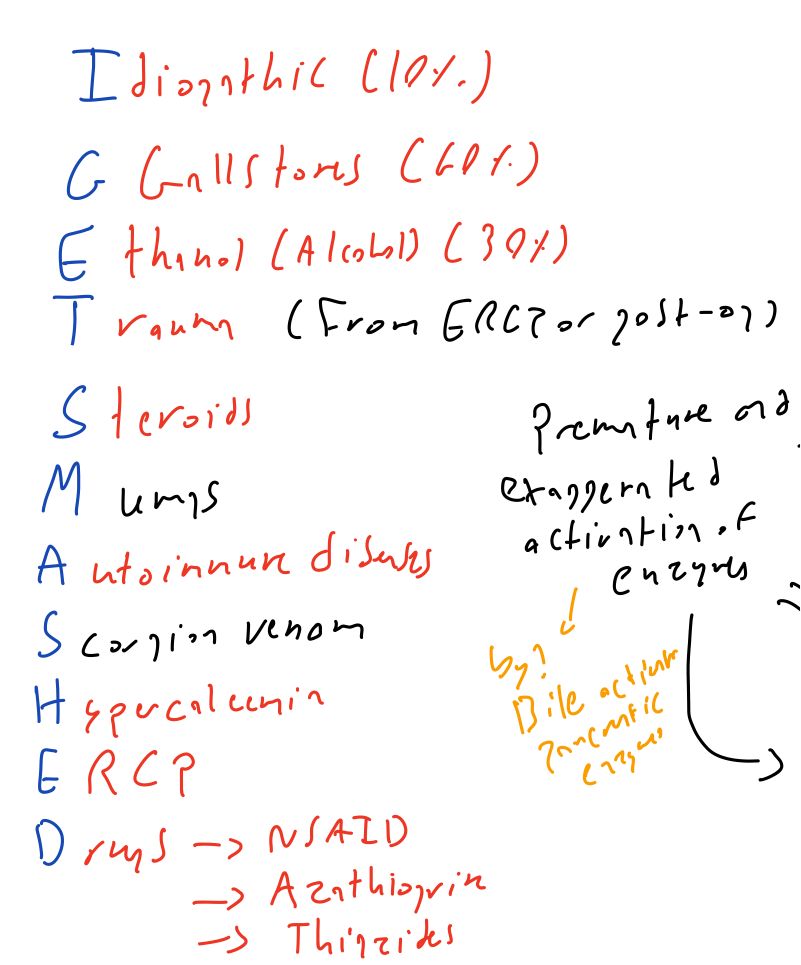 Idiopathic (10%)
G Gallstones (60%)
Ethanol (Alcohol) (30%)
Trauma (From ERCP or post-op)
Steroids
Mumps
Autoimmune diseases
Scorpion venom
Hypercalcemia
ERCP
Drugs → NSAID
→ Azathioprin
→ Thiazides
Premature and
exaggerated
activation of
enzymes
by?
Bile activate
pancreatic
enzymes